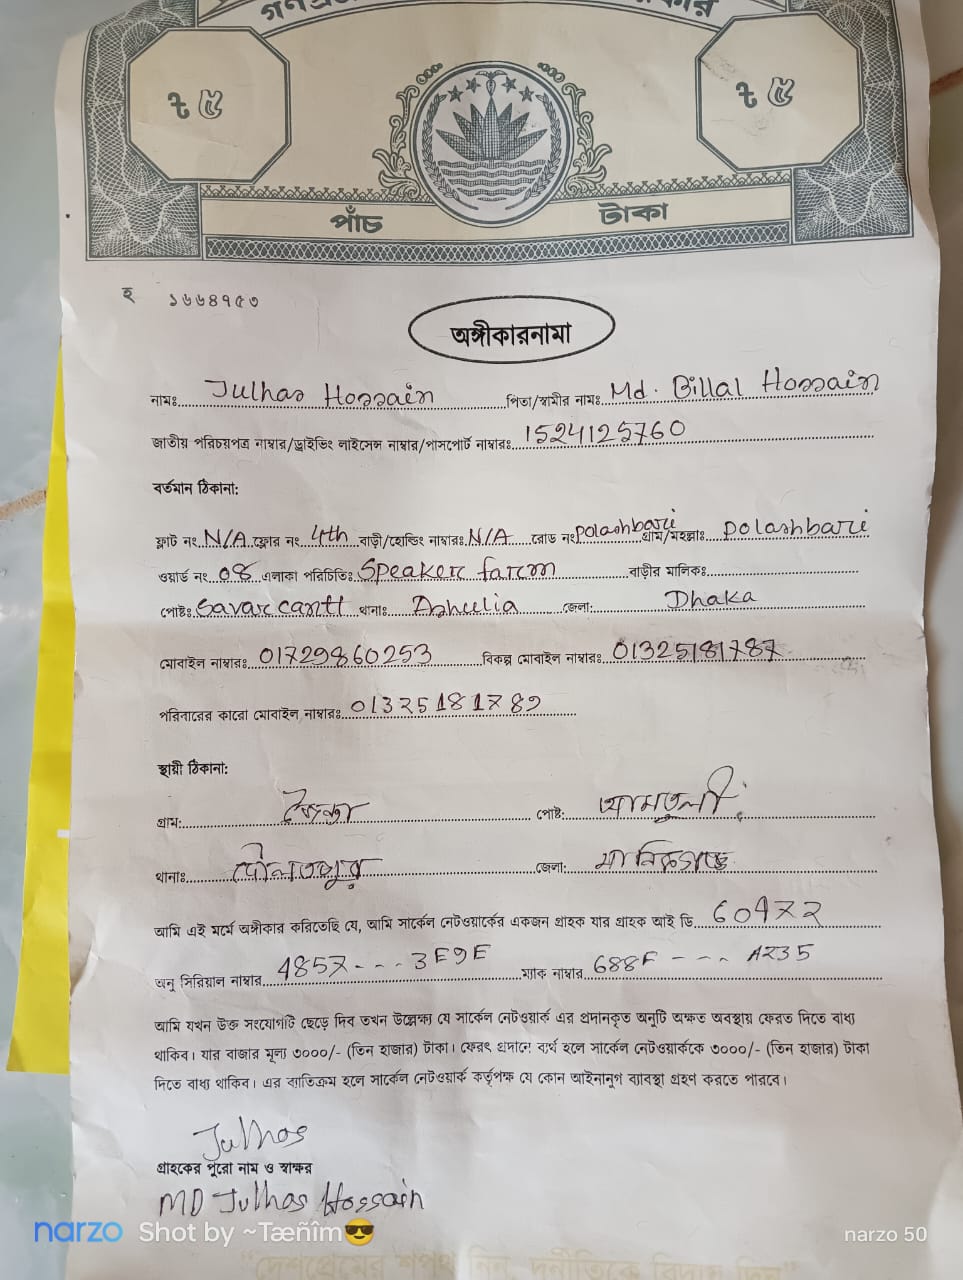 ৳ ৫ ৳ ৫
পাঁচ টাকা
হ ১৬৬৪৭৫৩
অঙ্গীকারনামা
নামঃ Julhas Hossain পিতা/স্বামীর নামঃ Md. Billal Hossain
জাতীয় পরিচয়পত্র নাম্বার/ড্রাইভিং লাইসেন্স নাম্বার/পাসপোর্ট নাম্বারঃ 1524125760
বর্তমান ঠিকানা:
ফ্লাট নং N/A ফ্লোর নং 4th বাড়ী/হোল্ডিং নাম্বারঃ N/A রোড নং polashbari গ্রাম/মহল্লাঃ polashbari
ওয়ার্ড নং 08 এলাকা পরিচিতিঃ Speaker farm বাড়ীর মালিকঃ
পোষ্টঃ Savar cantt থানাঃ Asheulia জেলা: Dhaka
মোবাইল নাম্বারঃ 01729860253 বিকল্প মোবাইল নাম্বারঃ 01325181787
পরিবারের কারো মোবাইল নাম্বারঃ 01325181789
স্থায়ী ঠিকানা:
গ্রাম: পোষ্ট: আমতুলী
থানাঃ দৌলতপুর জেলা: মানিকগঞ্জ
আমি এই মর্মে অঙ্গীকার করিতেছি যে, আমি সার্কেল নেটওয়ার্কের একজন গ্রাহক যার গ্রাহক আই ডি
অনু সিরিয়াল নাম্বার 4857 - - - 3E9E ম্যাক নাম্বার 688F - - - A235
আমি যখন উক্ত সংযোগটি ছেড়ে দিব তখন উল্লেক্ষ্য যে সার্কেল নেটওয়ার্ক এর প্রদানকৃত অনুটি অক্ষত অবস্থায় ফেরত দিতে বাধ্য
থাকিব। যার বাজার মূল্য ৩০০০/- (তিন হাজার) টাকা। ফেরৎ প্রদানে ব্যর্থ হলে সার্কেল নেটওয়ার্ককে ৩০০০/- (তিন হাজার) টাকা
দিতে বাধ্য থাকিব। এর ব্যতিক্রম হলে সার্কেল নেটওয়ার্ক কর্তৃপক্ষ যে কোন আইনানুগ ব্যাবস্থা গ্রহণ করতে পারবে।
Julhas
গ্রাহকের পুরো নাম ও স্বাক্ষর
MD Julhas Hossain
narzo Shot by ~Tæñîm😎 narzo 50
"দেশপ্রেমের শপথ নিন, দুর্নীতিকে বিদায় দিন"